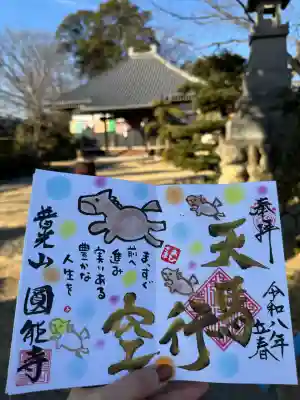 奉拝
天馬行空
令和八年
立春
まっすぐ
前へ
進み
実りある
豊かな
人生を
普光山 圓能寺